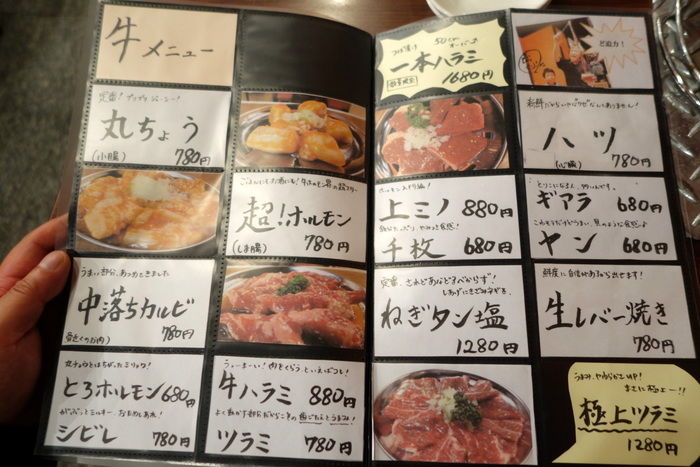 牛メニュー
定番！プリプリジューシー！
丸ちょう
(小腸) 780円
超！ホルモン
(しま腸) 780円
うまい部分、あつめてきました
中落ちカルビ
骨近くのお肉 780円
とろホルモン 680円
シビレ 780円
牛ハラミ 880円
ツラミ 780円
つぼ漬け
一本ハラミ
数量限定 1680円
ど迫力！
ハツ
(心臓) 780円
上ミノ 880円
千枚 680円
ギアラ 680円
ヤン 680円
ねぎタン塩
1280円
鮮度に自信があるから出せます！
生レバー焼き
780円
うまみ、やわらかさUP！
まさに極上ー！！
極上ツラミ
1280円